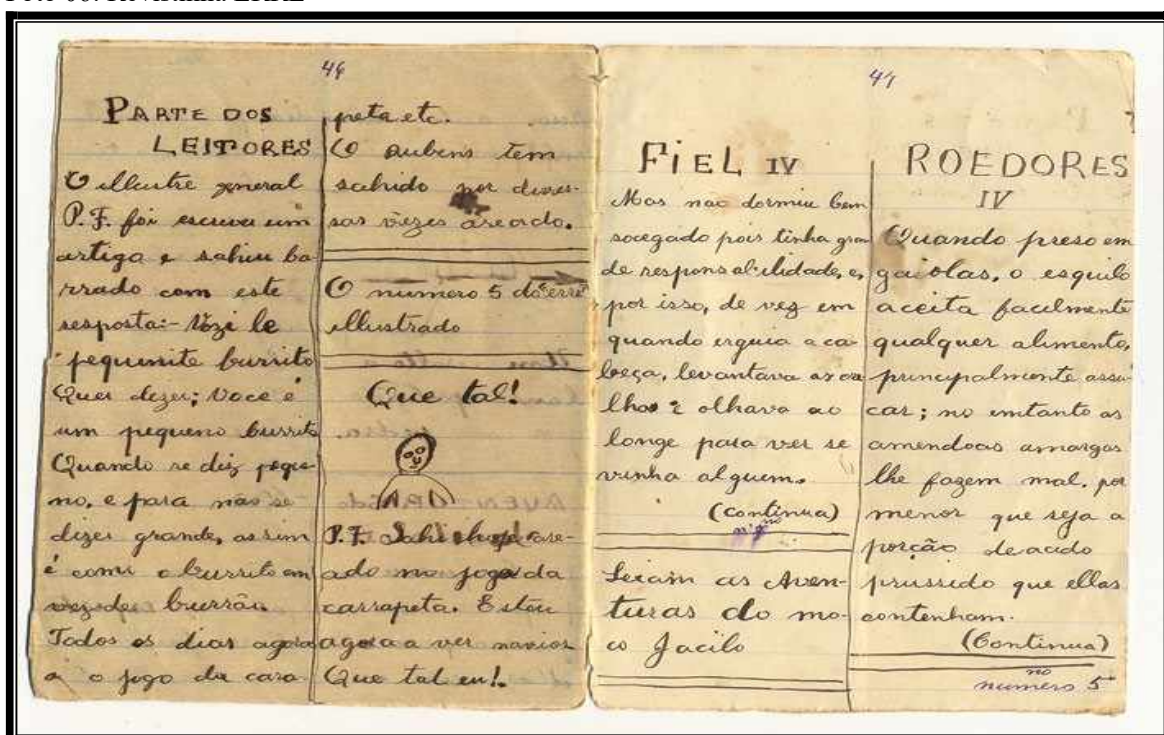 46
PARTE DOS
LEITORES
O illustre general
P. F. foi escrever um
artigo e sahiu ba-
rrado com este
resposta:- le
pequenite burrito
Quer dizer; Voce é
um pequeno burrito
Quando se diz peque-
no, e para não se
dizer grande, assim
é como o burrito em
vez de burrão.
Todos os dias agora
a o jogo da cara-
peta etc.
O rubens tem
sahido por diver-
sas vezes areado.
O numero 5 do "erre"
illustrado
Que tal!
P. F. Sahi hoje
ado no jogo da
carrapeta. Estou
agora a ver navios
Que tal eu!.
47
FIEL IV
Mas nao dormiu bem
socegado pois tinha gran
de responsabilidade, e,
por isso, de vez em
quando erguia a ca-
beça, levantava as ore
lhas e olhava ao
longe para ver se
vinha alguem.
(continua)
Leiam as Aven-
turas do mo-
co Jacilo
ROEDORES
IV
Quando preso em
gaiolas, o esquilo
aceita facilmente
qualquer alimento,
principalmente assu-
car; no emtanto as
amendoas amargas
lhe fazem mal, por
menor que seja a
porção de acido
prussido que ellas
contenham.
(Continua)
no
numero 5